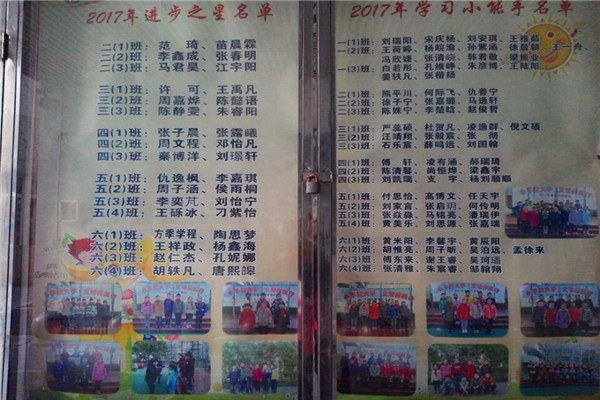 2017年进步之星名单
二(1)班: 范琦、苗晨霖
二(2)班: 李鑫成、张春明
二(3)班: 马君昊、江宇阳
三(1)班: 许可、王禹凡
三(2)班: 周嘉烨、陈懿语
三(3)班: 陈静雯、朱睿阳
四(1)班: 张子晨、张露曦
四(2)班: 周文程、邓怡凡
四(3)班: 秦博洋、刘璟轩
五(1)班: 仇逸枫、李嘉琪
五(2)班: 周子涵、侯雨桐
五(3)班: 李奕芃、刘怡宁
五(4)班: 王砾冰、刁紫怡
六(1)班: 方季学程、陶思梦
六(2)班: 王祥政、杨鑫海
六(3)班: 赵仁杰、孔妮娜
六(4)班: 胡轶凡、唐熙皞
2017年学习小能手名单
一(1)班: 刘瑞阳、宋庆杨、刘安琪、王
一(2)班: 王荷婷、杨皖渝、孙紫涵、徐晨朝、王一舟
冯欣媛、张清晓、韩君敬、梁振业
一(3)班: 白若彤、孔维峥、朱彦博、王陆阳
姜轶凡、张楷扬
二(1)班: 熊平川、何际飞、仇善宁
二(2)班: 徐子宁、张嘉璐、马逸轩
二(3)班: 陈姝宁、李楚晗、赵俊哲
三(1)班: 严蕊硕、杜贺凡、凌逸群、倪文硕
三(2)班: 汪靖翔、张毅宸、张彻
三(3)班: 石乐宸、薛鸣远、刘国翰
四(1)班: 傅轩、凌有涵、郝瑞琦
四(2)班: 陈清馨、尚恒烨、梁鑫宇
四(3)班: 刘凯瑞、支宇、杨刘顺顺
五(1)班: 付思怡、高博文、任天宇
五(2)班: 刘家言、张启玥、何传明
五(3)班: 张焱淼、马铭亮、潘瑞伊
五(4)班: 黄美乐、刘思源、张嘉瑞
六(1)班: 黄米阳、李馨宇、黄辰阳
六(2)班: 胡惟亮、周子昕、吴泊远、孟徐来
六(3)班: 傅东来、谢王睿、吴珂瑶
六(4)班: 张清雅、朱宸睿、邹翰翔